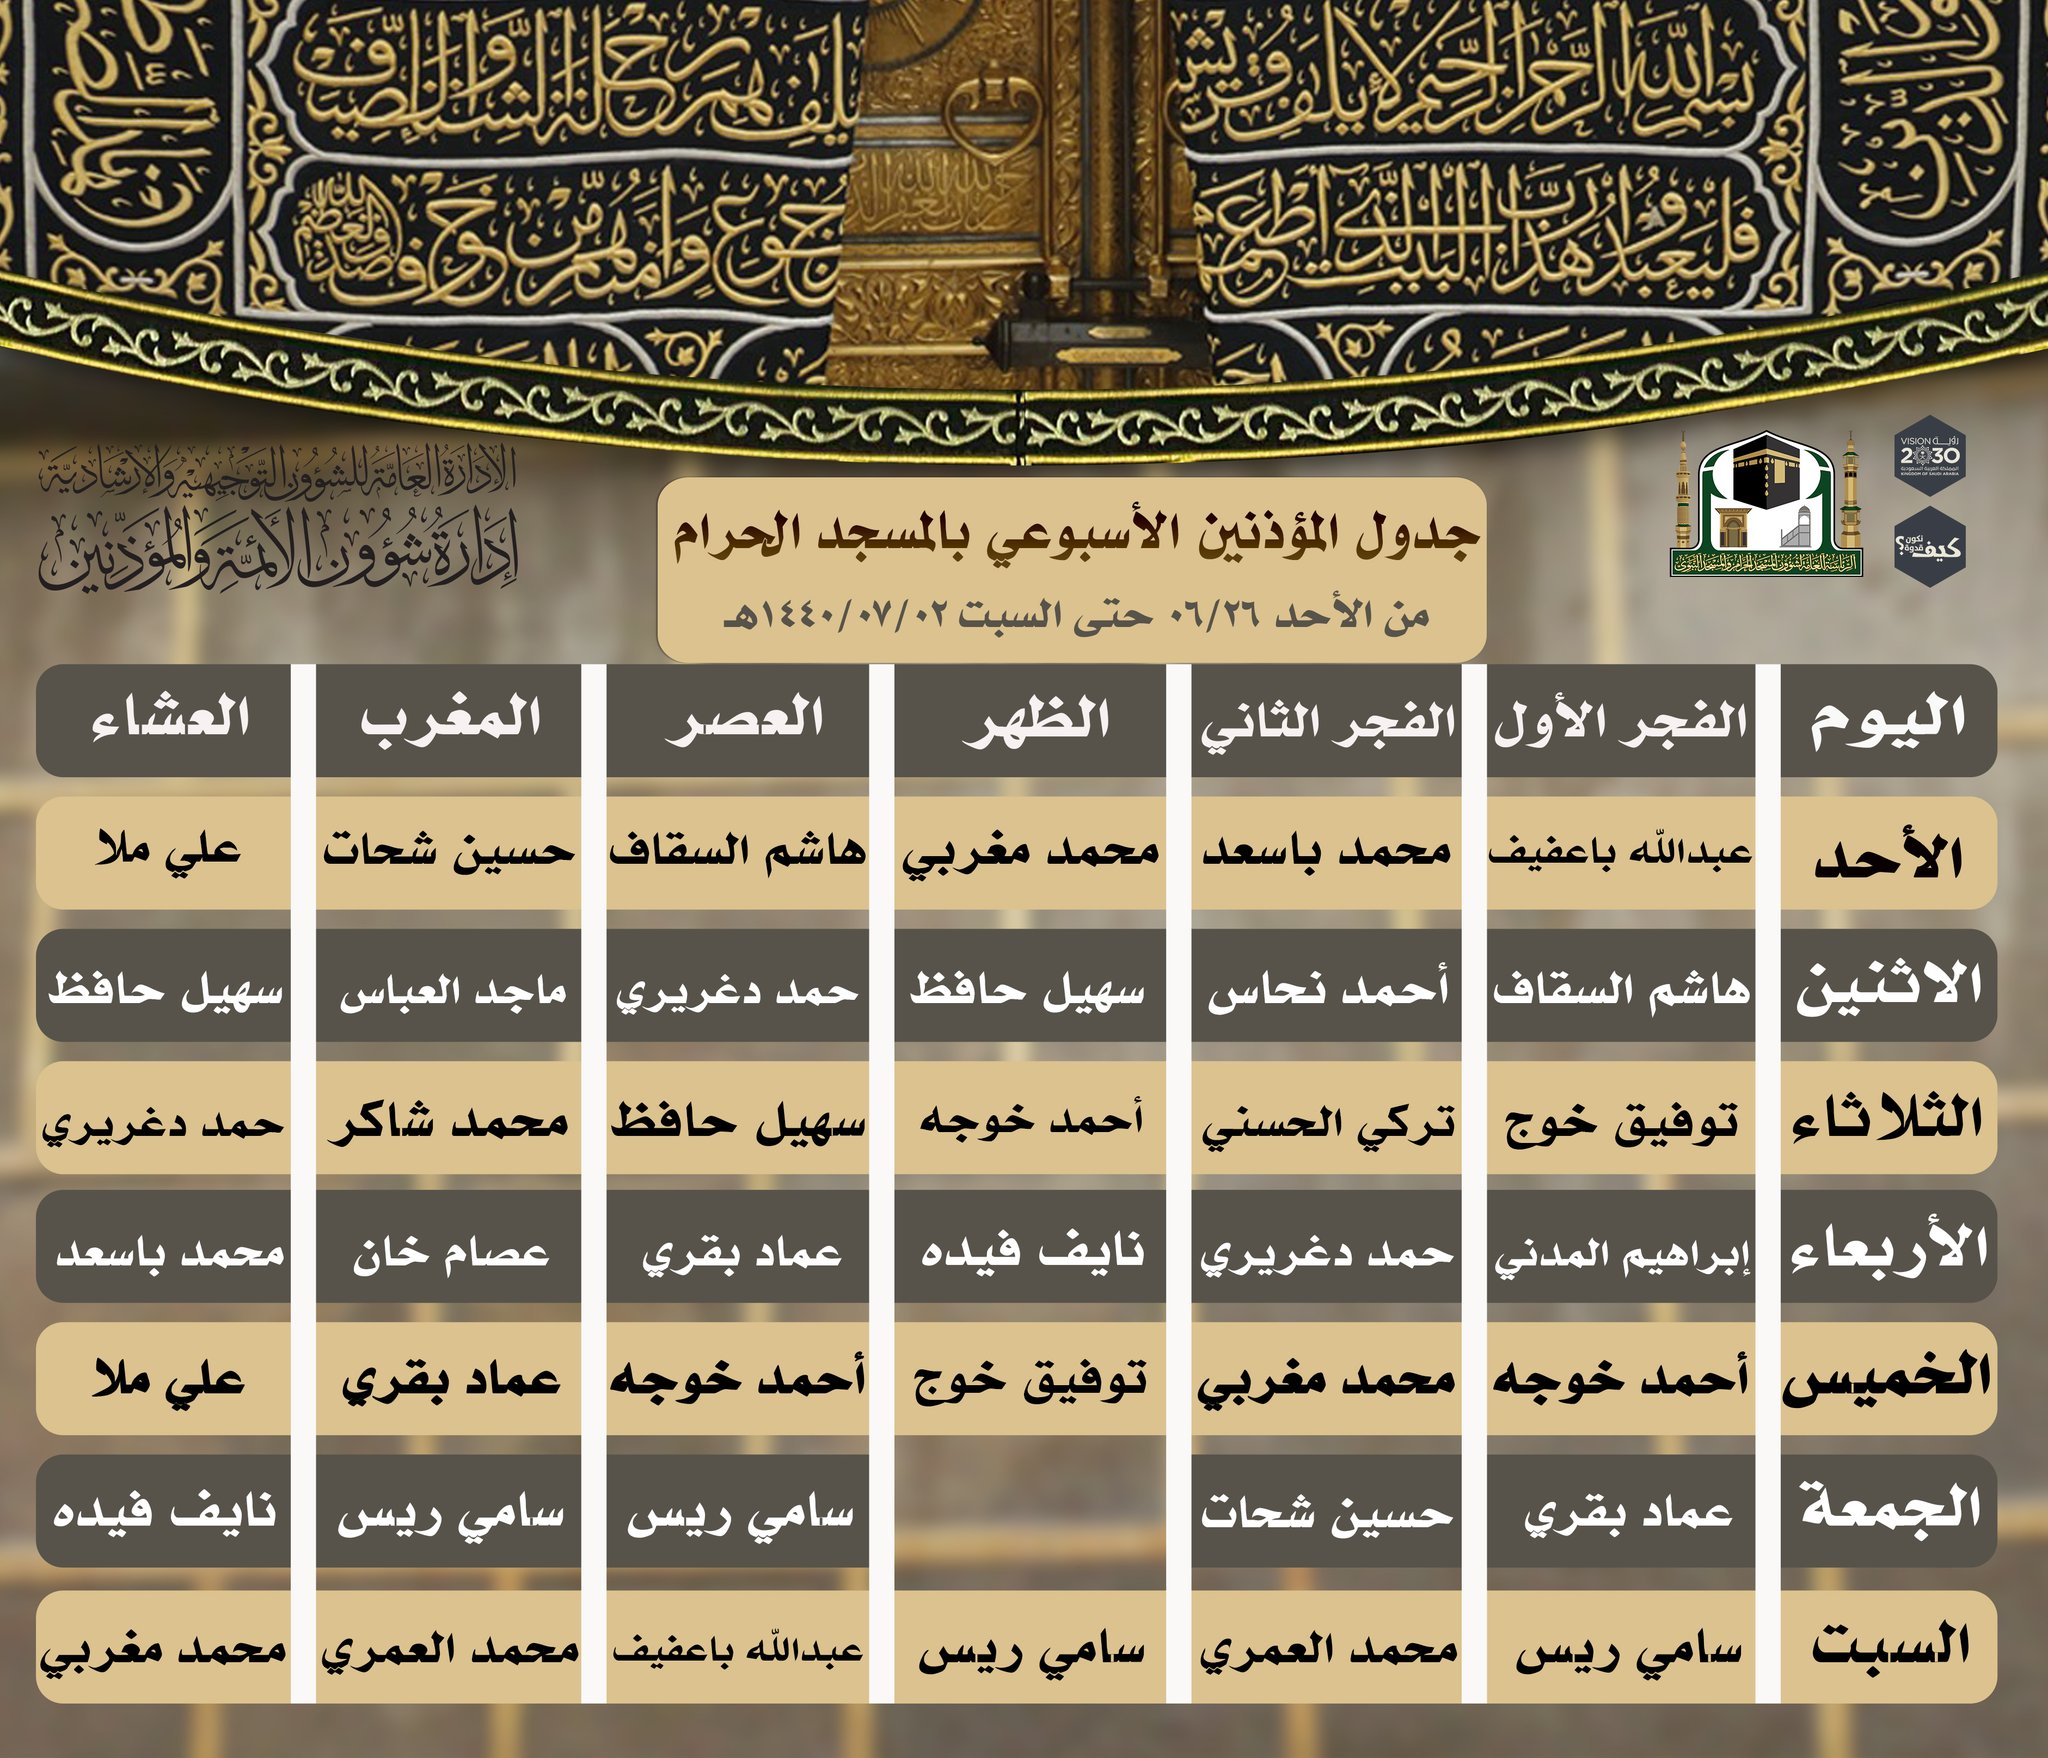 بسم الله الرحمن الرحيم لإيلاف قريش
إيلافهم رحلة الشتاء والصيف
فليعبدوا رب هذا البيت الذي أطعمهم
جوع وآمنهم من خوف صدق الله العظيم
رؤية VISION
2030
المملكة العربية السعودية
KINGDOM OF SAUDI ARABIA
كيف نكون قدوة؟
الرئاسة العامة لشؤون المسجد الحرام والمسجد النبوي
الإدارة العامة للشؤون التوجيهية والإرشادية
إدارة شؤون الأئمة والمؤذنين
جدول المؤذنين الأسبوعي بالمسجد الحرام
من الأحد ٠٦/٢٦ حتى السبت ١٤٤٠/٠٧/٠٢هـ
اليوم الفجر الأول الفجر الثاني الظهر العصر المغرب العشاء
الأحد عبدالله باعفيف محمد باسعد محمد مغربي هاشم السقاف حسين شحات علي ملا
الاثنين هاشم السقاف أحمد نحاس سهيل حافظ حمد دغريري ماجد العباس سهيل حافظ
الثلاثاء توفيق خوج تركي الحسني أحمد خوجه سهيل حافظ محمد شاكر حمد دغريري
الأربعاء إبراهيم المدني حمد دغريري نايف فيده عماد بقري عصام خان محمد باسعد
الخميس أحمد خوجه محمد مغربي توفيق خوج أحمد خوجه عماد بقري علي ملا
الجمعة عماد بقري حسين شحات سامي ريس سامي ريس نايف فيده
السبت سامي ريس محمد العمري سامي ريس عبدالله باعفيف محمد العمري محمد مغربي